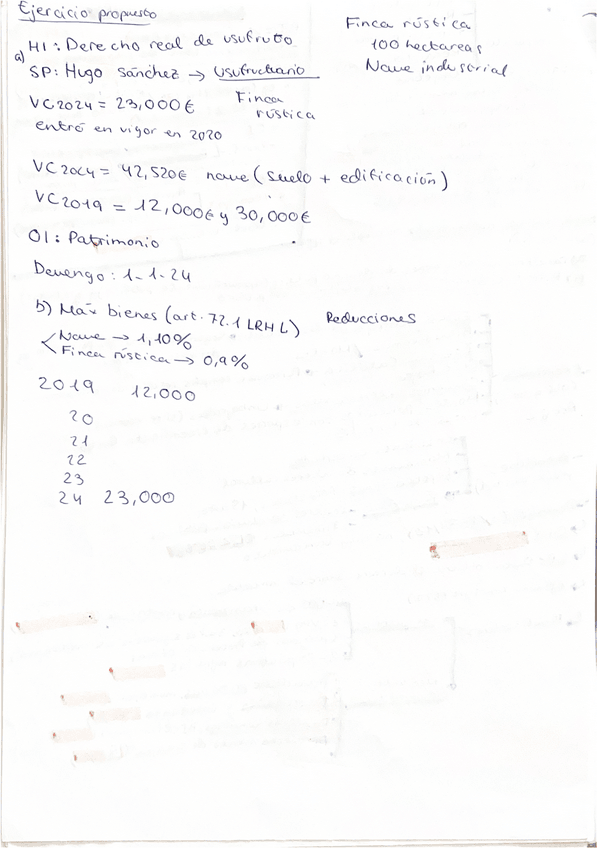 Ejercicio propuesto
Finca rústica
100 hectareas
Nave industrial
a) HI: Derecho real de usufruto
SP: Hugo sánchez → usufructuario
VC2024 = 23,000€ Finca rústica
entró en vigor en 2020
VC2024 = 42,520€ nave (suelo + edificación)
VC2019 = 12,000€ y 30,000€
OI: Patrimonio
Devengo: 1-1-24
b) Más bienes (art. 72.1 LRHL) Reducciones
Nave → 1,10%
Finca rústica → 0,9%
2019 12,000
20
21
22
23
24 23,000